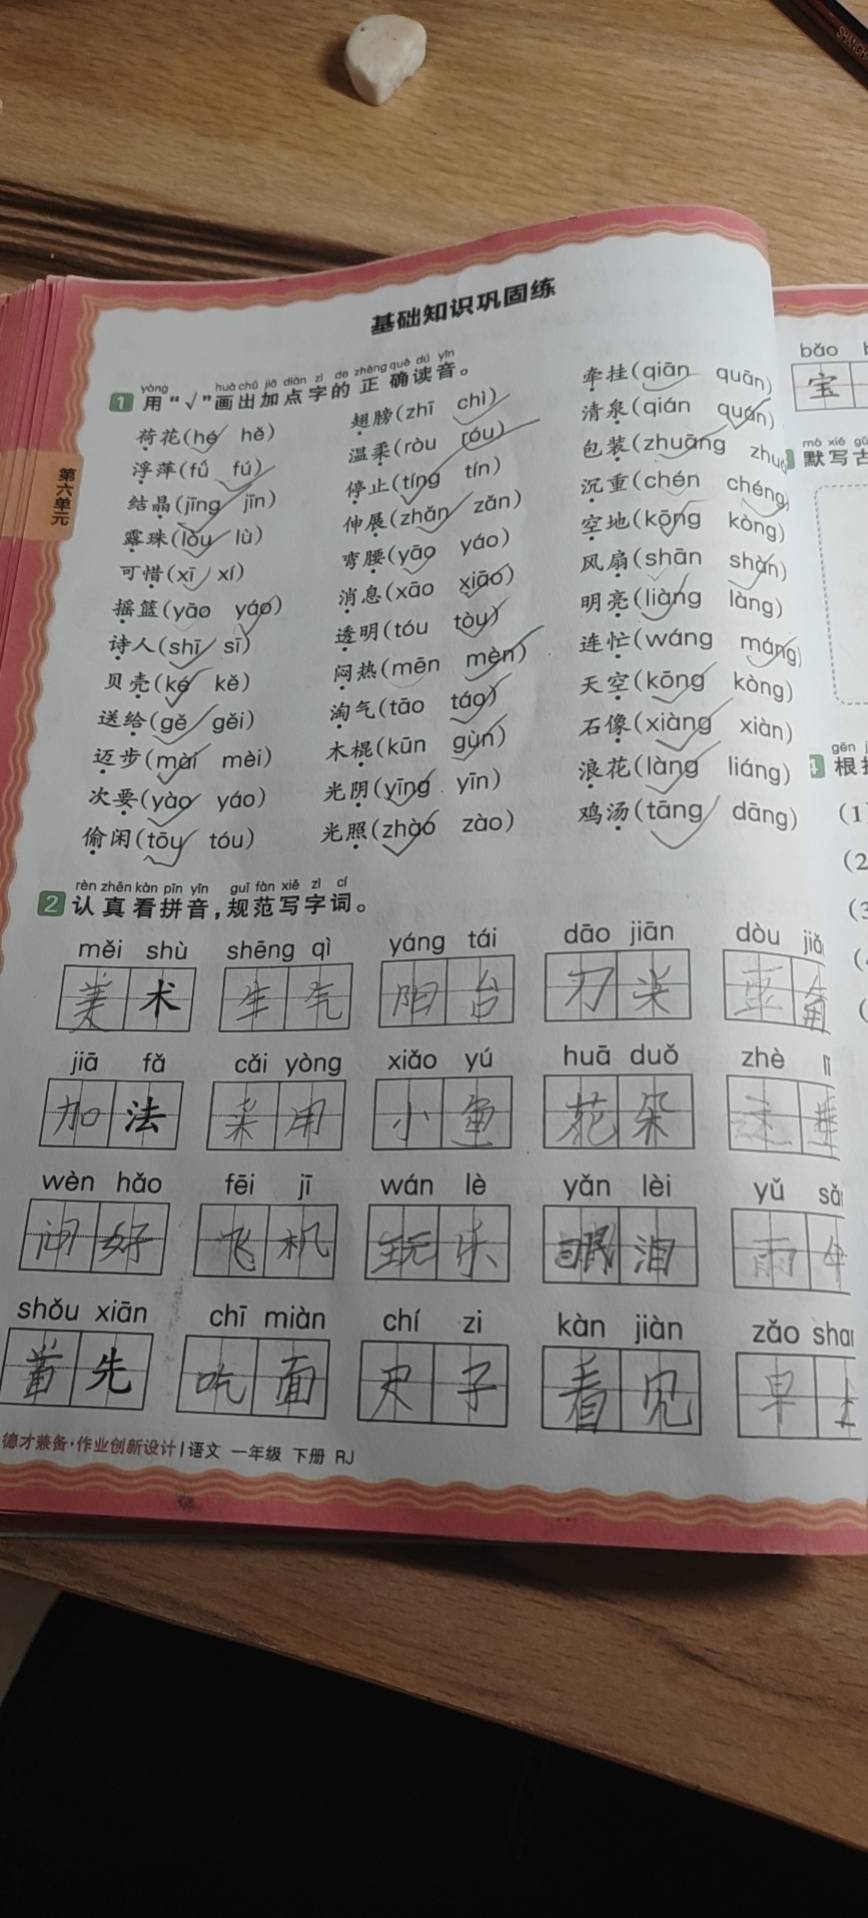 基础知识巩固练
yòng huà chū jiā diǎn zì de zhèng què dú yīn
1 用“√”画出加点字的正确读音。
荷花(hé hě)
浮萍(fǘ fú)
结晶(jīng jīn)
露珠(lòu lù)
可惜(xī xí)
摇篮(yāo yáo)
诗人(shī sī)
贝壳(ké kě)
送给(gě gěi)
迈步(mài mèi)
次要(yào yáo)
偷闲(tōu tóu)
翅膀(zhī chì)
温柔(ròu róu)
停止(tíng tín)
伸展(zhǎn zǎn)
弯腰(yāo yáo)
消息(xāo xiāo)
透明(tóu tòu)
闷热(mēn mèn)
淘气(tāo táo)
木棍(kūn gùn)
光阴(yīng yīn)
光照(zhào zào)
牵挂(qiān quān)
清泉(qián quán)
包装(zhuāng
沉重(chén chéng)
空地(kōng kòng)
风扇(shān shàn)
明亮(liàng làng)
连忙(wáng máng)
天空(kōng kòng)
石像(xiàng xiàn)
浪花(làng liáng)
鸡汤(tāng dāng)
第六单元
rèn zhēn kàn pīn yīn guī fàn xiě zì cí
2 认真看拼音,规范写字词。
měi shù shēng qì yáng tái dāo jiān dòu
美术 生气 阳台 刀尖
jiā fǎ cǎi yòng xiǎo yú huā duǒ zhè
加法 采用 小鱼 花朵 这
wèn hǎo fēi jī wán lè yǎn lèi yǔ
问好 飞机 玩乐 眼泪 雨伞
shǒu xiān chī miàn chí zi kàn jiàn zǎo
首先 吃面 尺子 看见 早上
德才兼备·作业创新设计 | 语文 一年级 下册 RJ
bǎo
宝
mò xiě
默写古
gēn
根
(1
(2